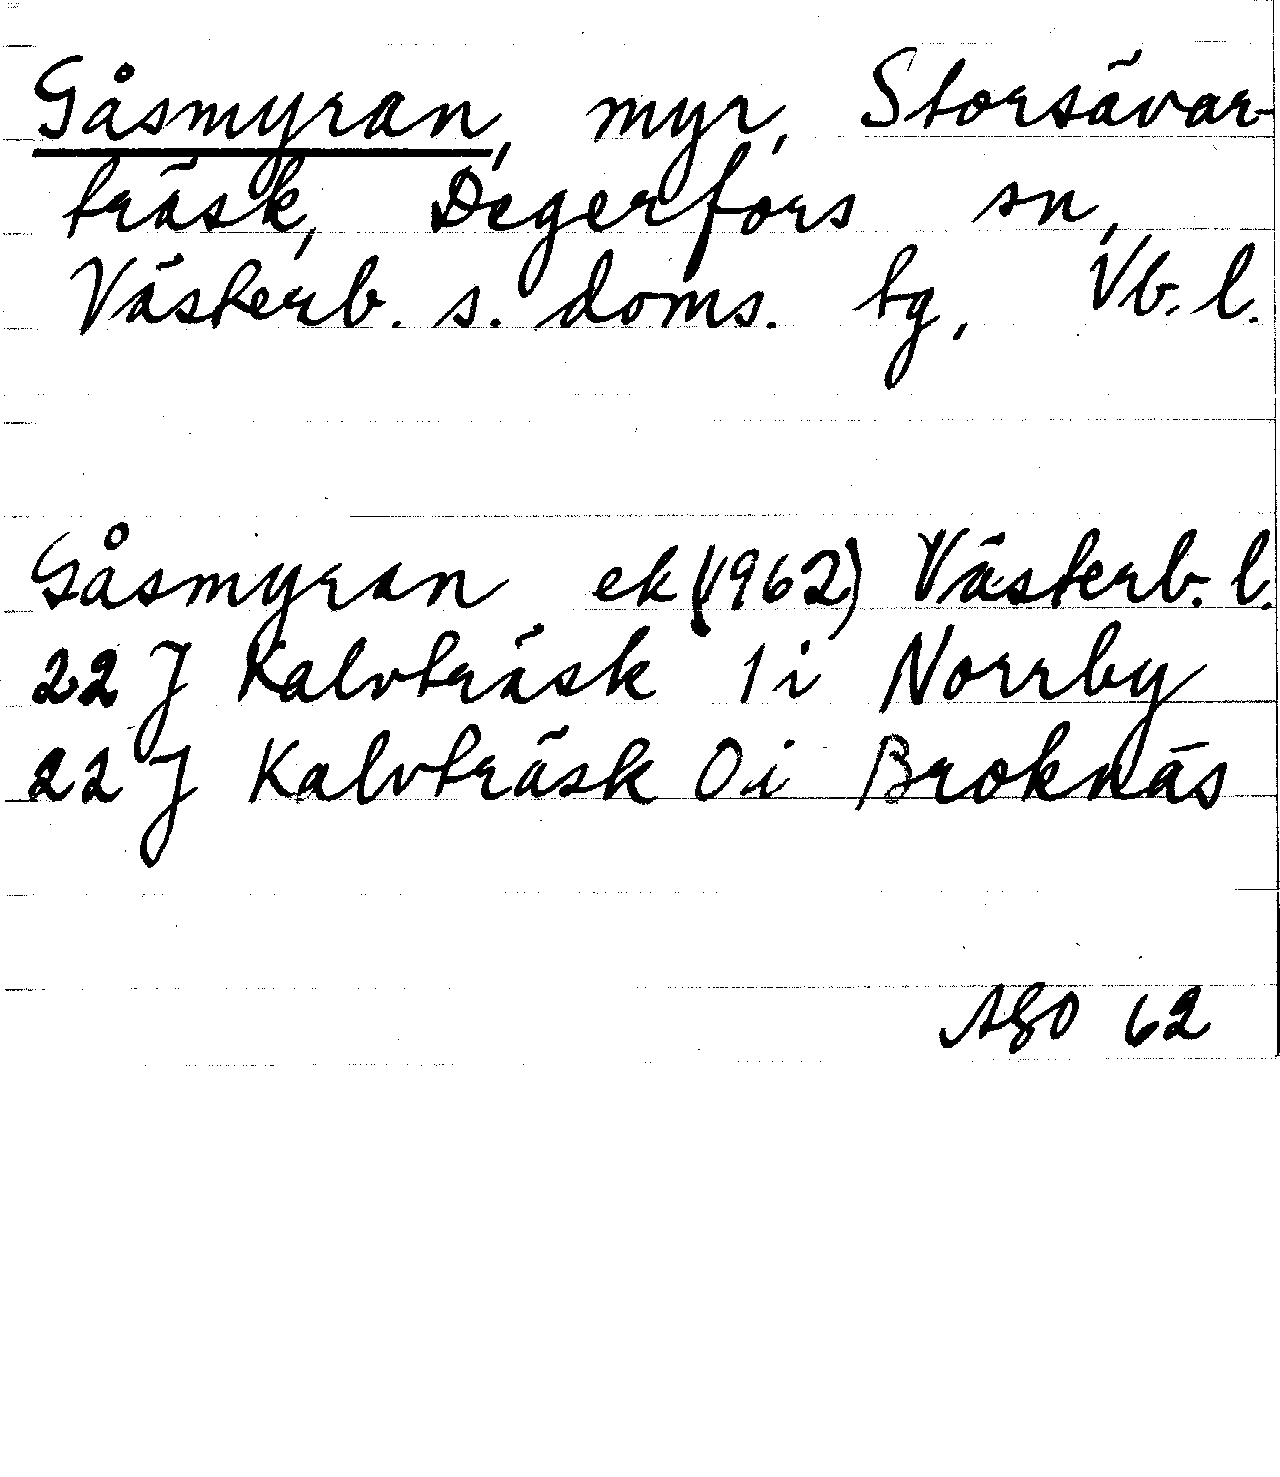 Gåsmyran, myr, Storsävar-
träsk, Degerfors sn,
Västerb. s. doms. tg, Vb. l.
Gåsmyran ek (1962) Västerb. l.
22 J Kalvträsk 1 i Norrby
22 J Kalvträsk 0 i Broknäs
AGO 62